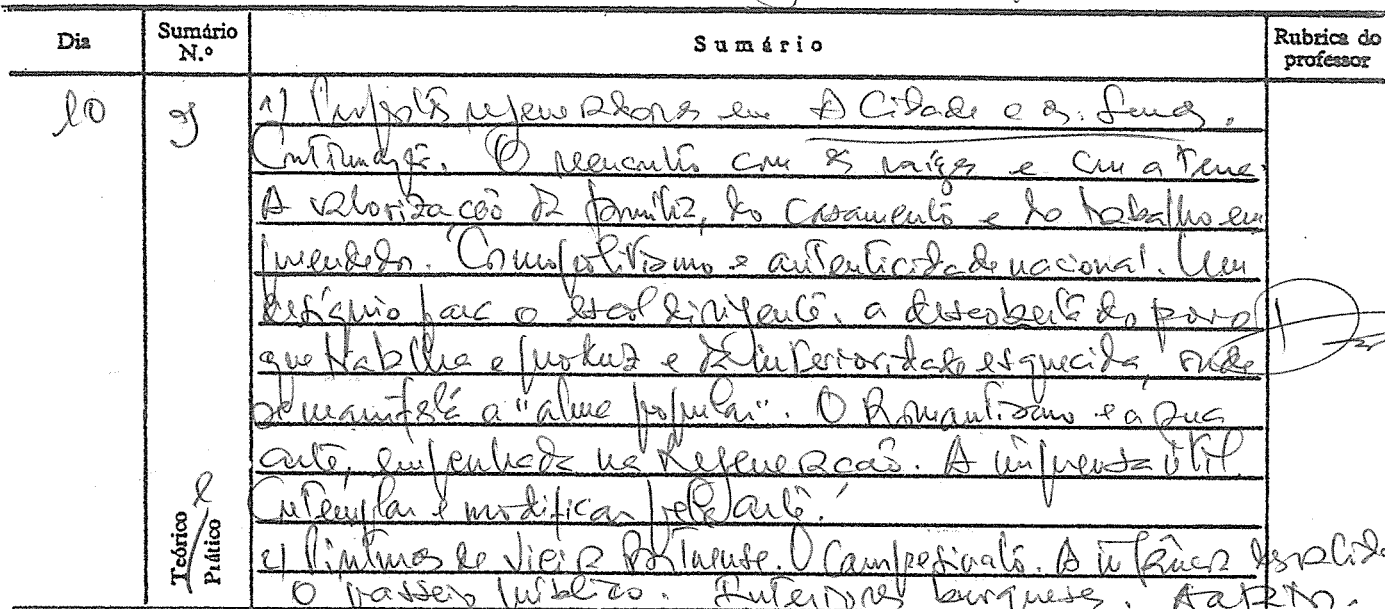 Dia Sumário N.º Sumário Rubrica do professor
10 1) Propostas regeneradoras em A Cidade e as Serras.
Continuação. O reencontro com as raízes e com a Terra.
A valorização da família, do casamento e do trabalho em
preendedor. Cosmopolitismo e autenticidade nacional. Um
desígnio para o escol dirigente: a descoberta do povo
que trabalha e produz e da interioridade esquecida, onde
se manifesta a "alma popular". O Romantismo e a sua
arte, empenhada na Regeneração. A imprensa útil.
Contemplar e modificar pela arte.
Teórico Prático
2) Pinturas de Portuense. O Campesinato. A infância
O Passeio Público. Interiores burgueses.